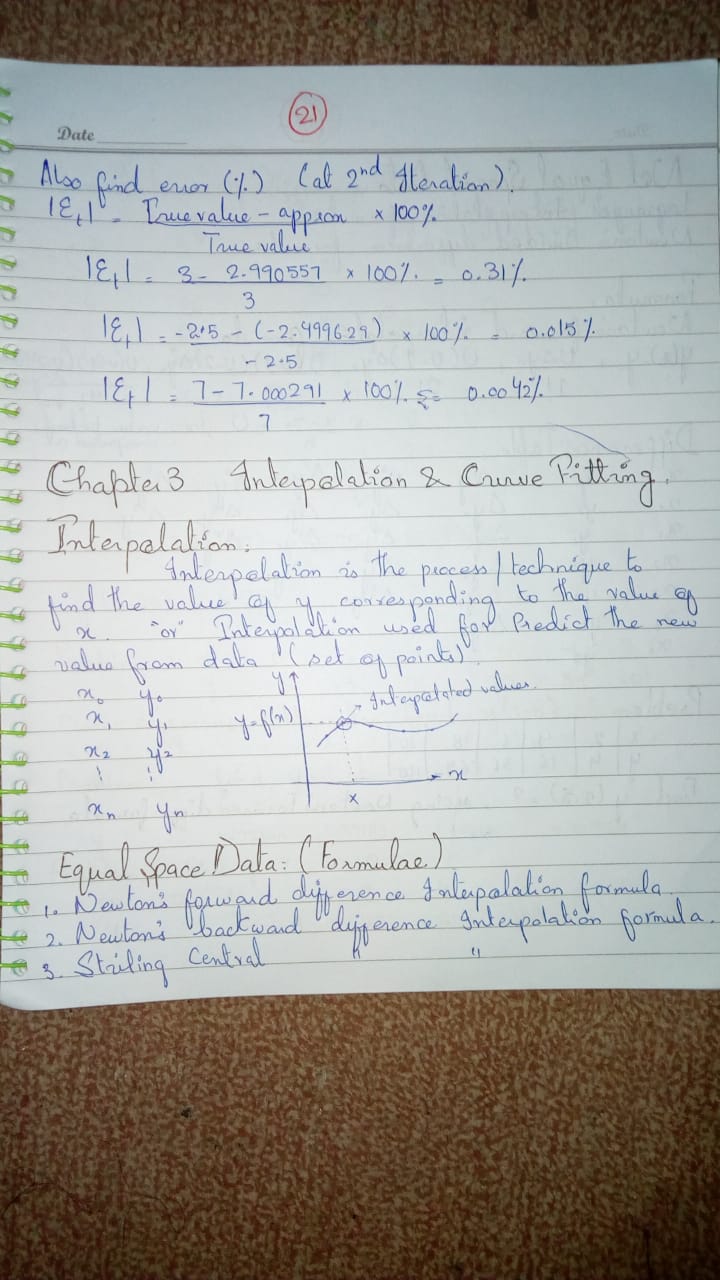 21
Date
Also find error (%) (at 2nd Iteration).
|Ɛt| = True value - approx × 100%
True value
|Ɛt| = 3 - 2.990557 × 100% = 0.31%
3
|Ɛt| = -2.5 - (-2.499629) × 100% = 0.015%
-2.5
|Ɛt| = 7 - 7.000291 × 100% = 0.0042%
7
Chapter 3 Interpolation & Curve Fitting.
Interpolation:
Interpolation is the process/technique to
find the value of y corresponding to the value of
x. "or" Interpolation used for Predict the new
value from data (set of points).
x0 y0
x1 y1
x2 y2
⋮ ⋮
xn yn
y
y=f(x)
Interpolated values.
x
x
Equal Space Data: (Formulae)
1. Newton's forward difference Interpolation formula.
2. Newton's backward difference Interpolation formula.
3. Striling Central " "